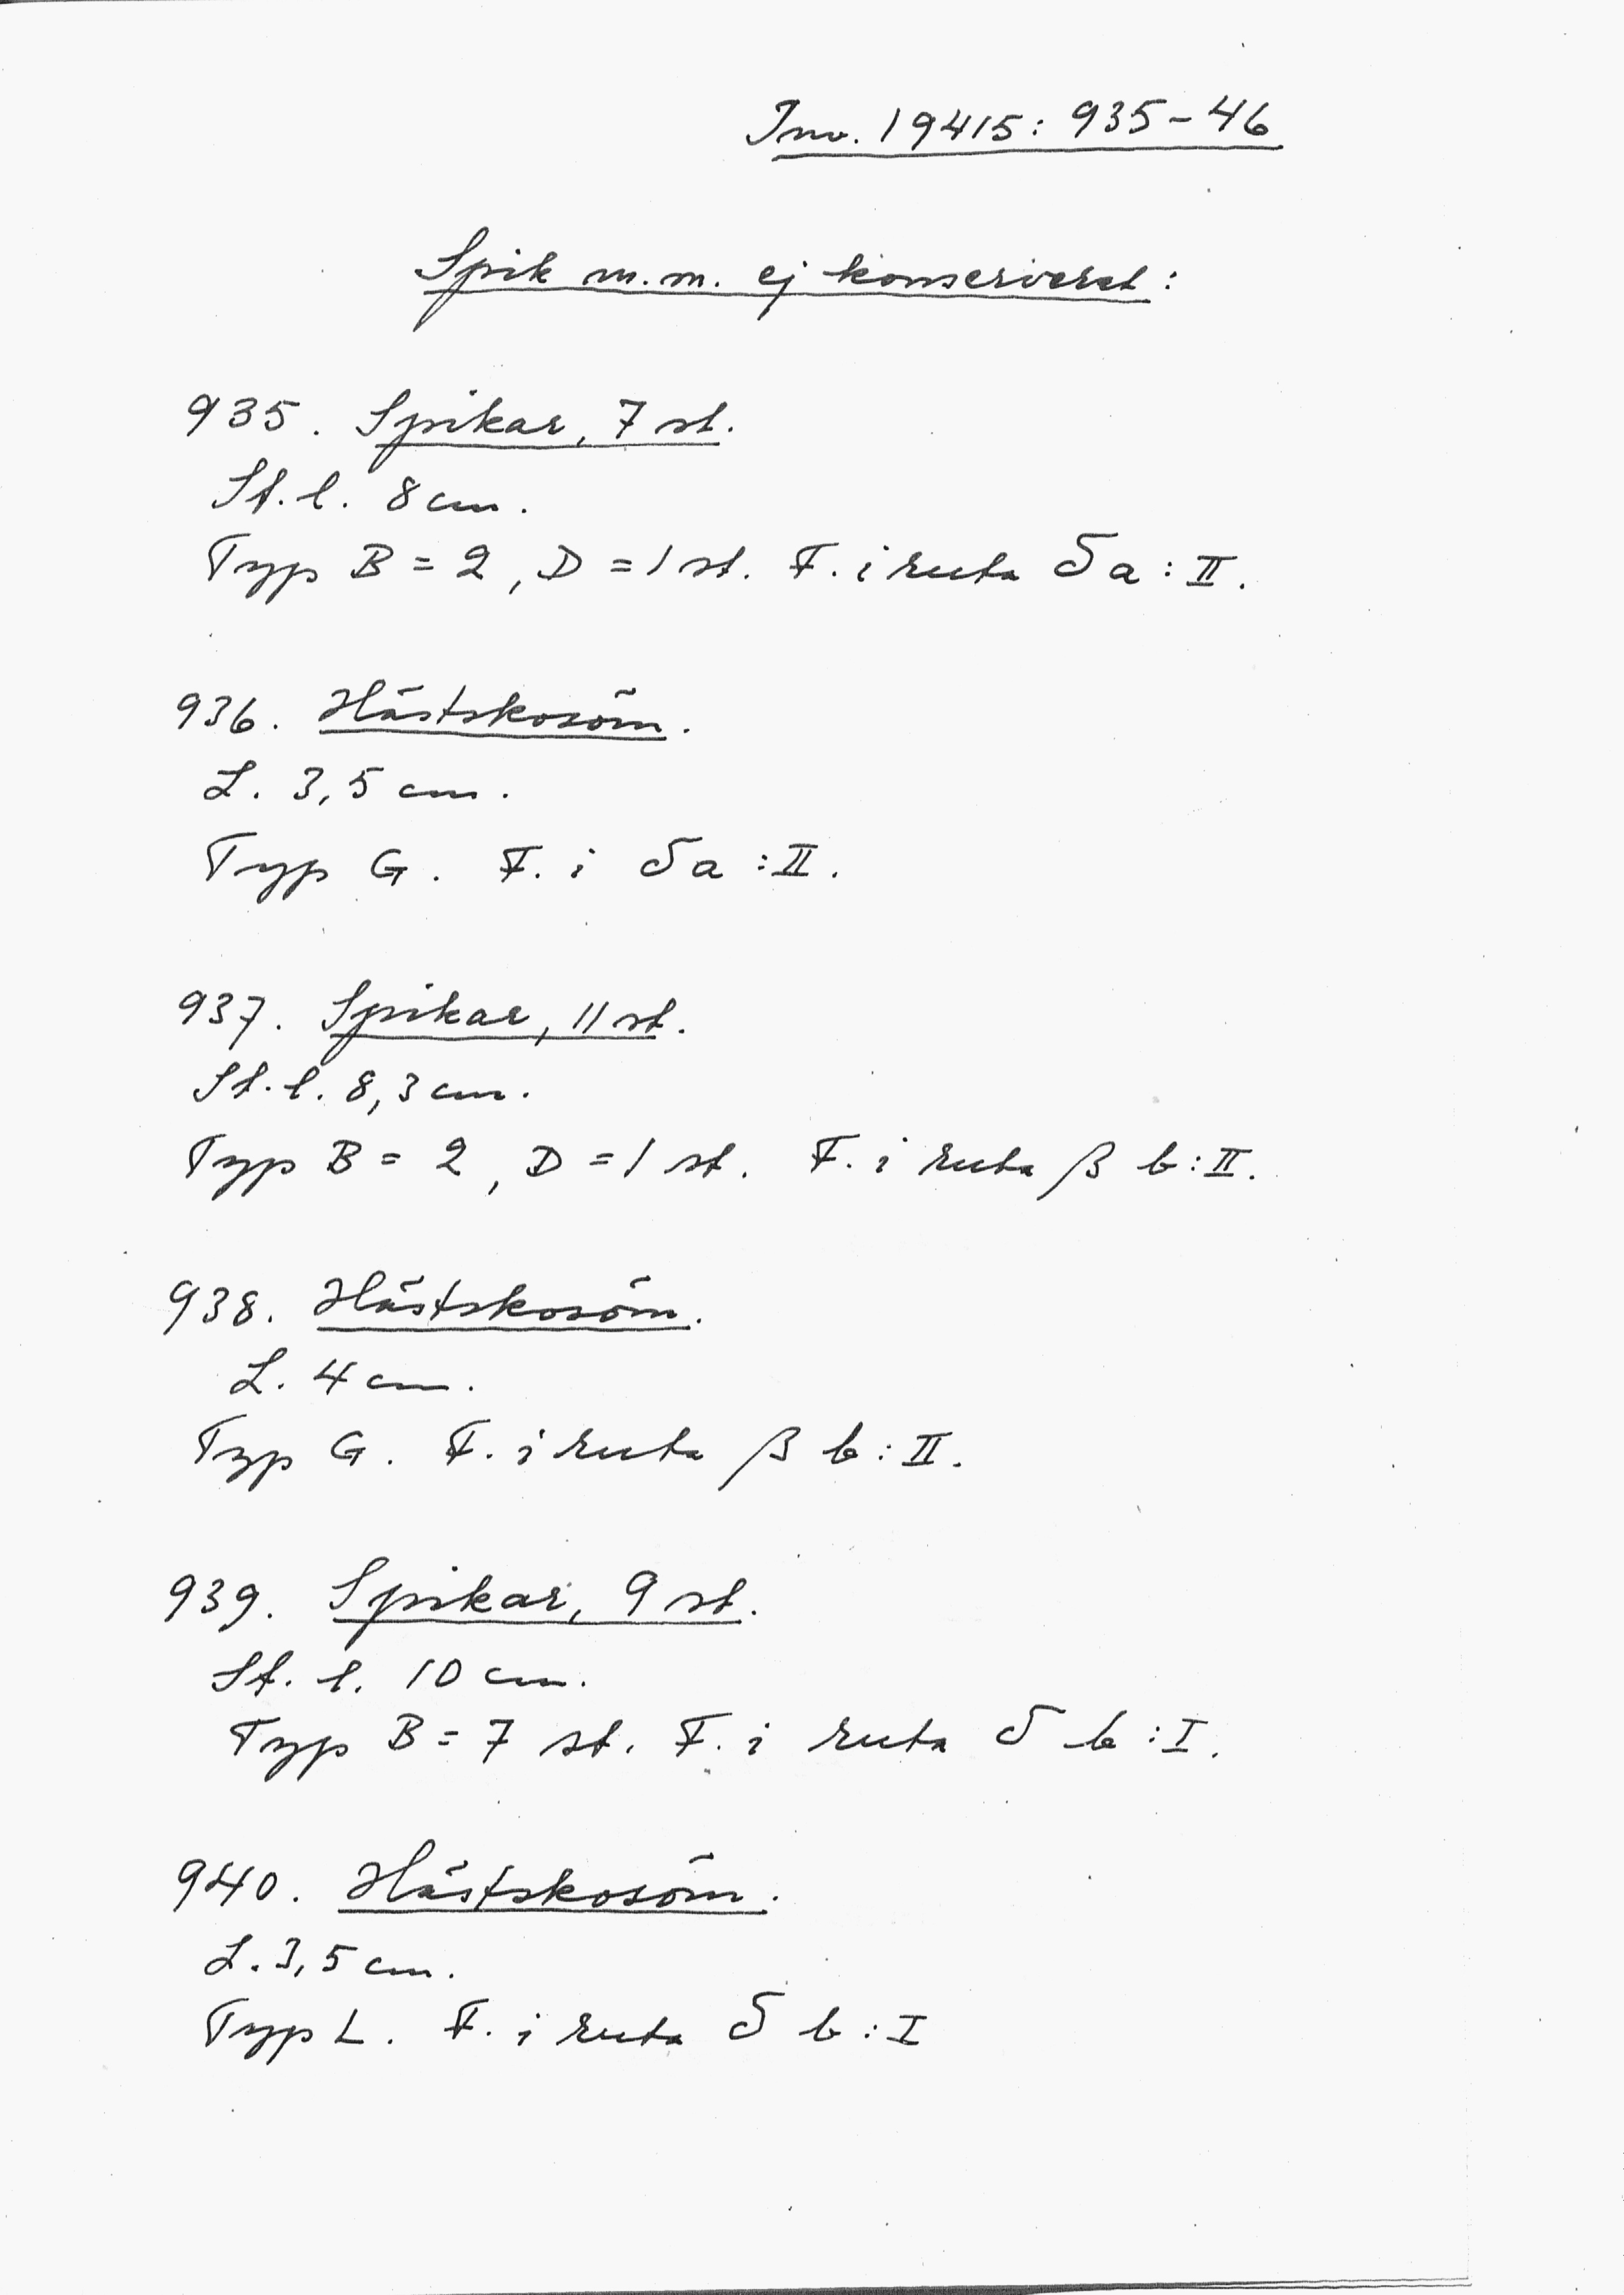 Inv. 19415: 935-46
Spik m.m. ej konserverat:
935. Spikar, 7 st.
St. l. 8 cm.
Typ B = 2, D = 1 st. F. i ruta δ a : II.
936. Hästskosöm.
L. 3,5 cm.
Typ G. F. i δ a : II.
937. Spikar, 11 st.
St. l. 8,3 cm.
Typ B = 2, D = 1 st. F. i ruta β b : II.
938. Hästskosöm.
L. 4 cm.
Typ G. F. i ruta β b : II.
939. Spikar, 9 st.
St. l. 10 cm.
Typ B = 7 st. F. i ruta δ b : I.
940. Hästskosöm.
L. 3,5 cm.
Typ L. F. i ruta δ b : I